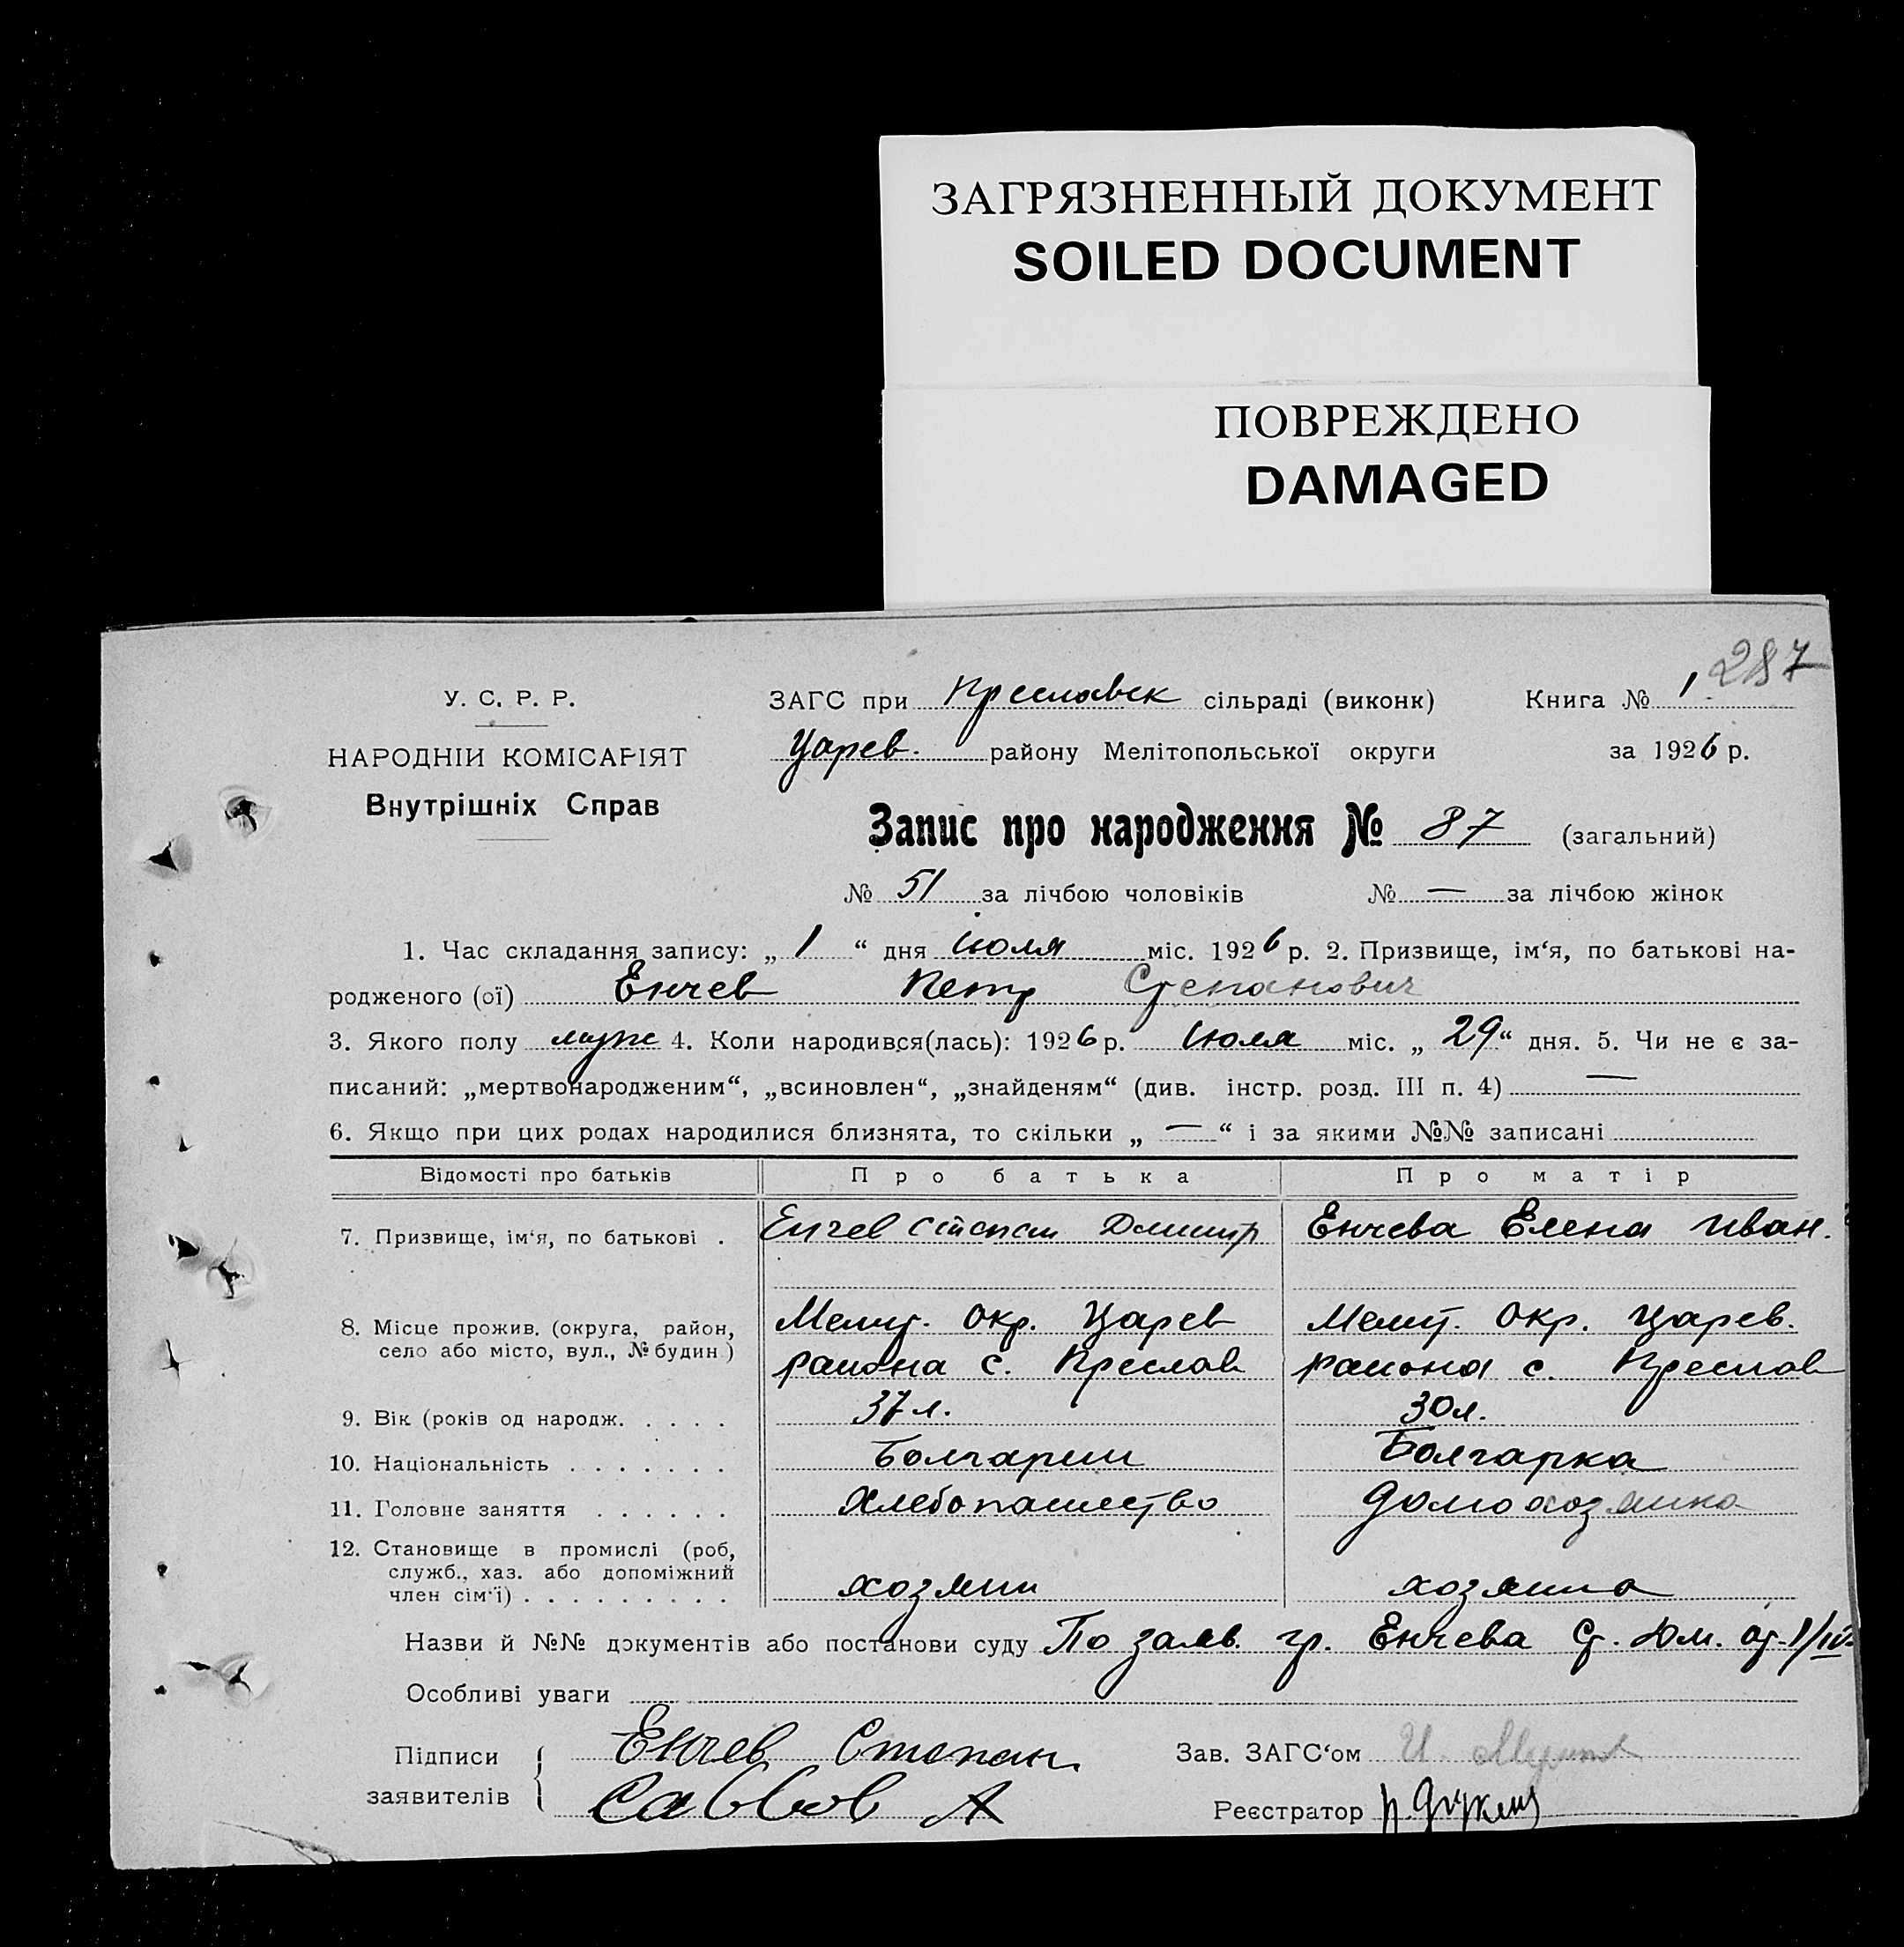 ЗАГРЯЗНЕННЫЙ ДОКУМЕНТ
SOILED DOCUMENT
ПОВРЕЖДЕНО
DAMAGED
287
У. С. Р. Р.
НАРОДНІЙ КОМІСАРІЯТ
Внутрішніх Справ
ЗАГС при Преславск сільраді (виконк) Книга № 1
Царев. району Мелітопольської округи за 1926 р.
Запис про народження № 87 (загальний)
№ 51 за лічбою чоловіків № — за лічбою жінок
1. Час складання запису: „ 1 “ дня июля міс. 1926 р. 2. Призвище, ім‘я, по батькові на-
родженого (ої) Енчев Петр Степанович
3. Якого полу муж 4. Коли народився(лась): 1926 р. июля міс. „ 29 “ дня. 5. Чи не є за-
писаний: „мертвонародженим“, „всиновлен“, „знайденям“ (див. інстр. розд. III п. 4) —
6. Якщо при цих родах народилися близнята, то скільки „ — “ і за якими №№ записані
Відомості про батьків Про батька Про матір
7. Призвище, ім‘я, по батькові . Енчев Степан Дмитр Енчева Елена Иван.
8. Місце прожив. (округа, район, село або місто, вул., № будин.) Мелит. окр. Царев Мелит. окр. Царев.
района с. Преслав района с. Преслав
9. Вік (років од народж. . . . . 37 л. 30 л.
10. Національність . . . . . . . Болгарин Болгарка
11. Головне заняття . . . . . . Хлебопашество домохозяйка
12. Становище в промислі (роб,
служб., хаз. або допоміжний
член сім‘ї) . . . . . . . . . хозяин хозяина
Назви й №№ документів або постанови суду По заяв. гр. Енчева Ст. Дм. от 1/
Особливі уваги
Підписи заявителів { Енчев Степан Зав. ЗАГС‘ом И.
Саввов А Реєстратор